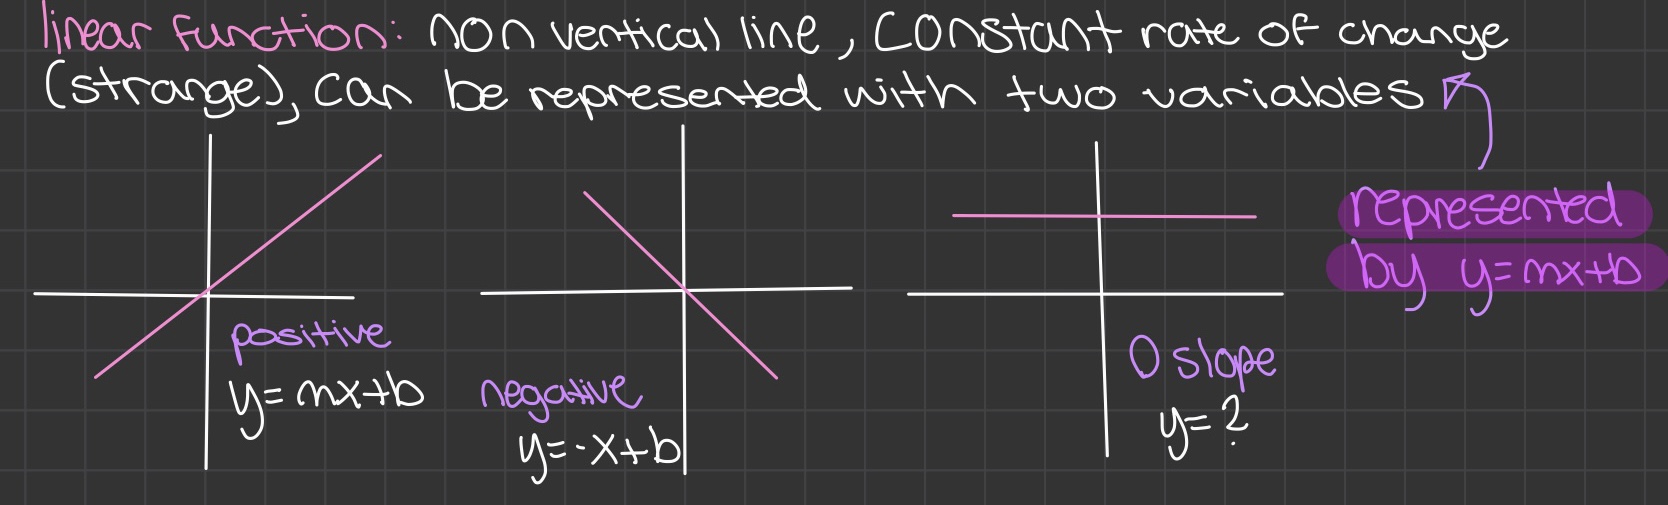 linear function: non vertical line, constant rate of change
(strange), can be represented with two variables
represented
by y=mx+b
positive
y=mx+b
negative
y=-x+b
0 slope
y=?